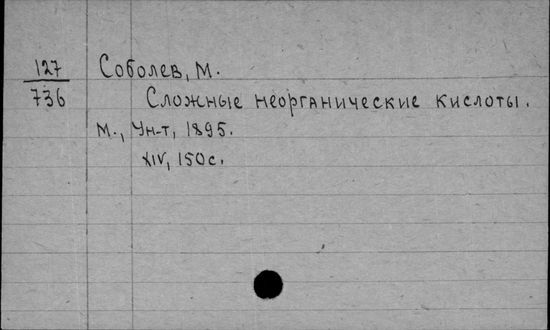 127
736
Соболев, М.
Сложные неорганические кислоты.
М., Ун-т, 1895.
XIV, 150 с.